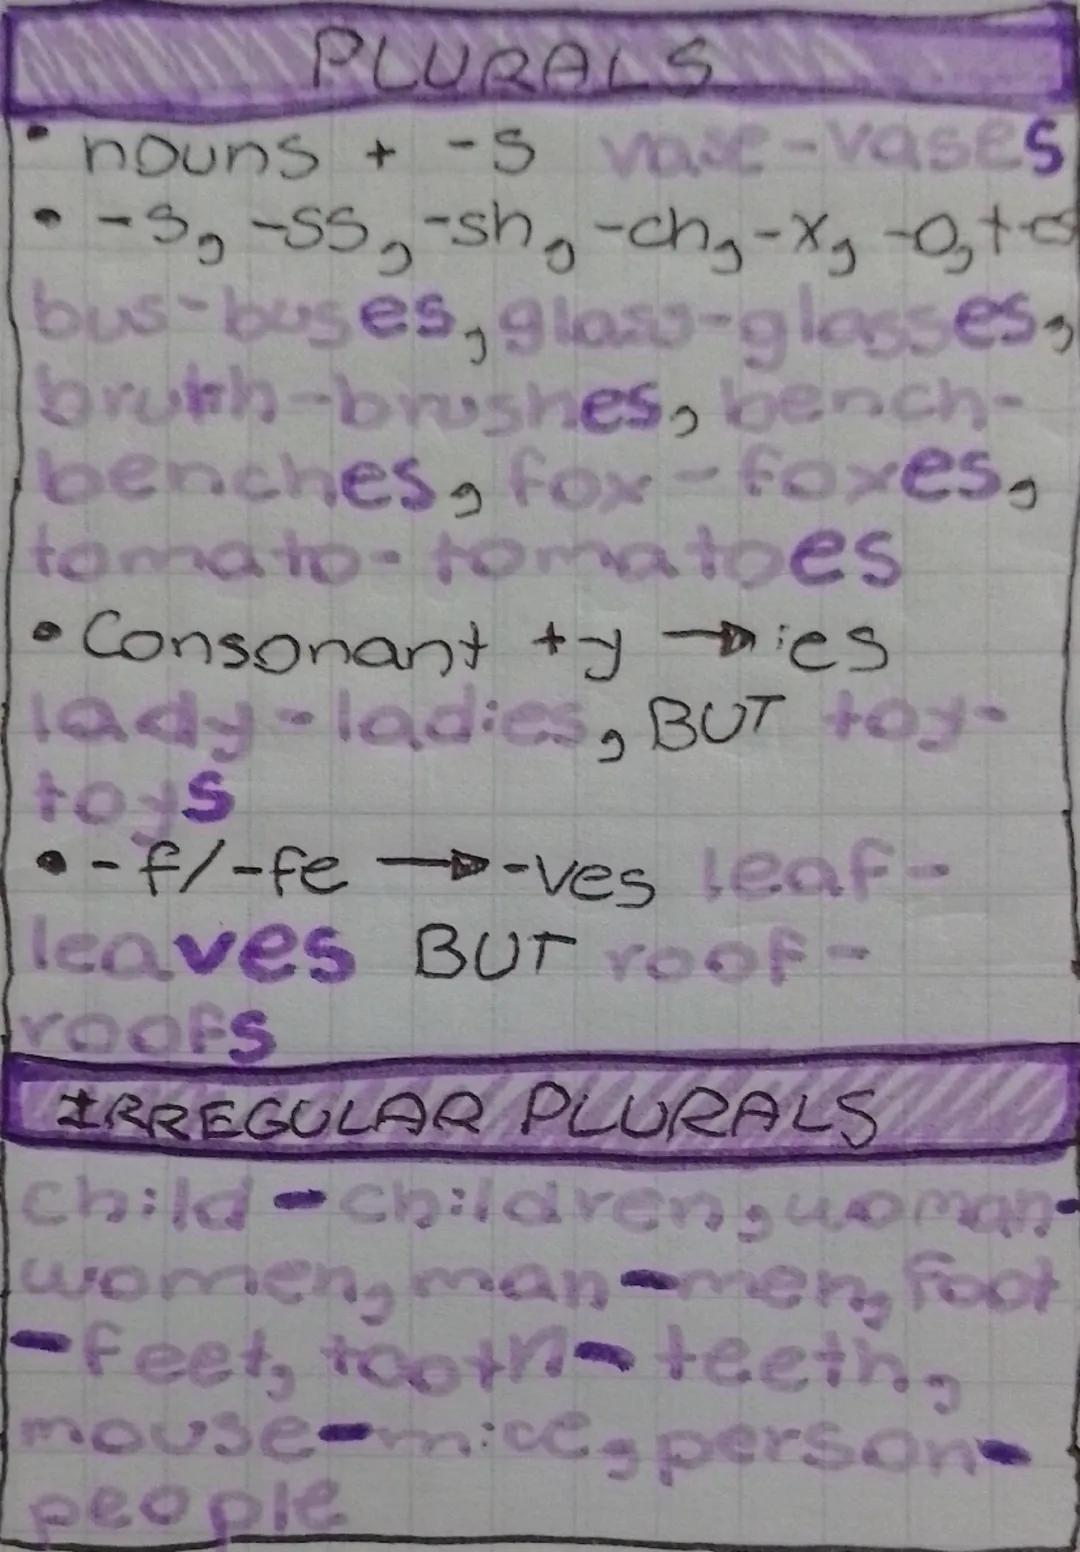 PLURALS
• nouns + -s vase-vases
• -s, -ss, -sh, -ch, -x, -o, +-es
bus-buses, glass-glasses,
brush-brushes, bench-
benches, fox-foxes,
tomato-tomatoes
• Consonant +y → ies
lady-ladies, BUT toy-
toys
• -f/-fe → -ves leaf-
leaves BUT roof-
roofs
IRREGULAR PLURALS
child-children, woman-
women, man-men, foot
-feet, tooth-teeth,
mouse-mice, person-
people